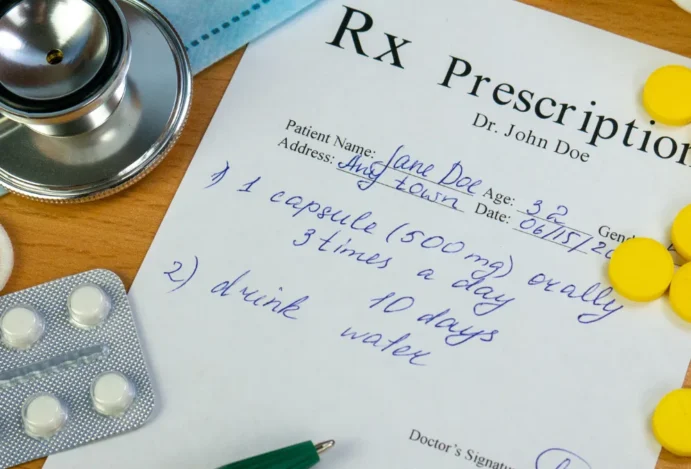 Rx Prescription
Dr. John Doe
Patient Name: Jane Doe Age: 32
Address: Any town Date: 06/15/20
1) 1 capsule (500mg) orally
3 times a day
10 days
2) drink water
Doctor's Signatu